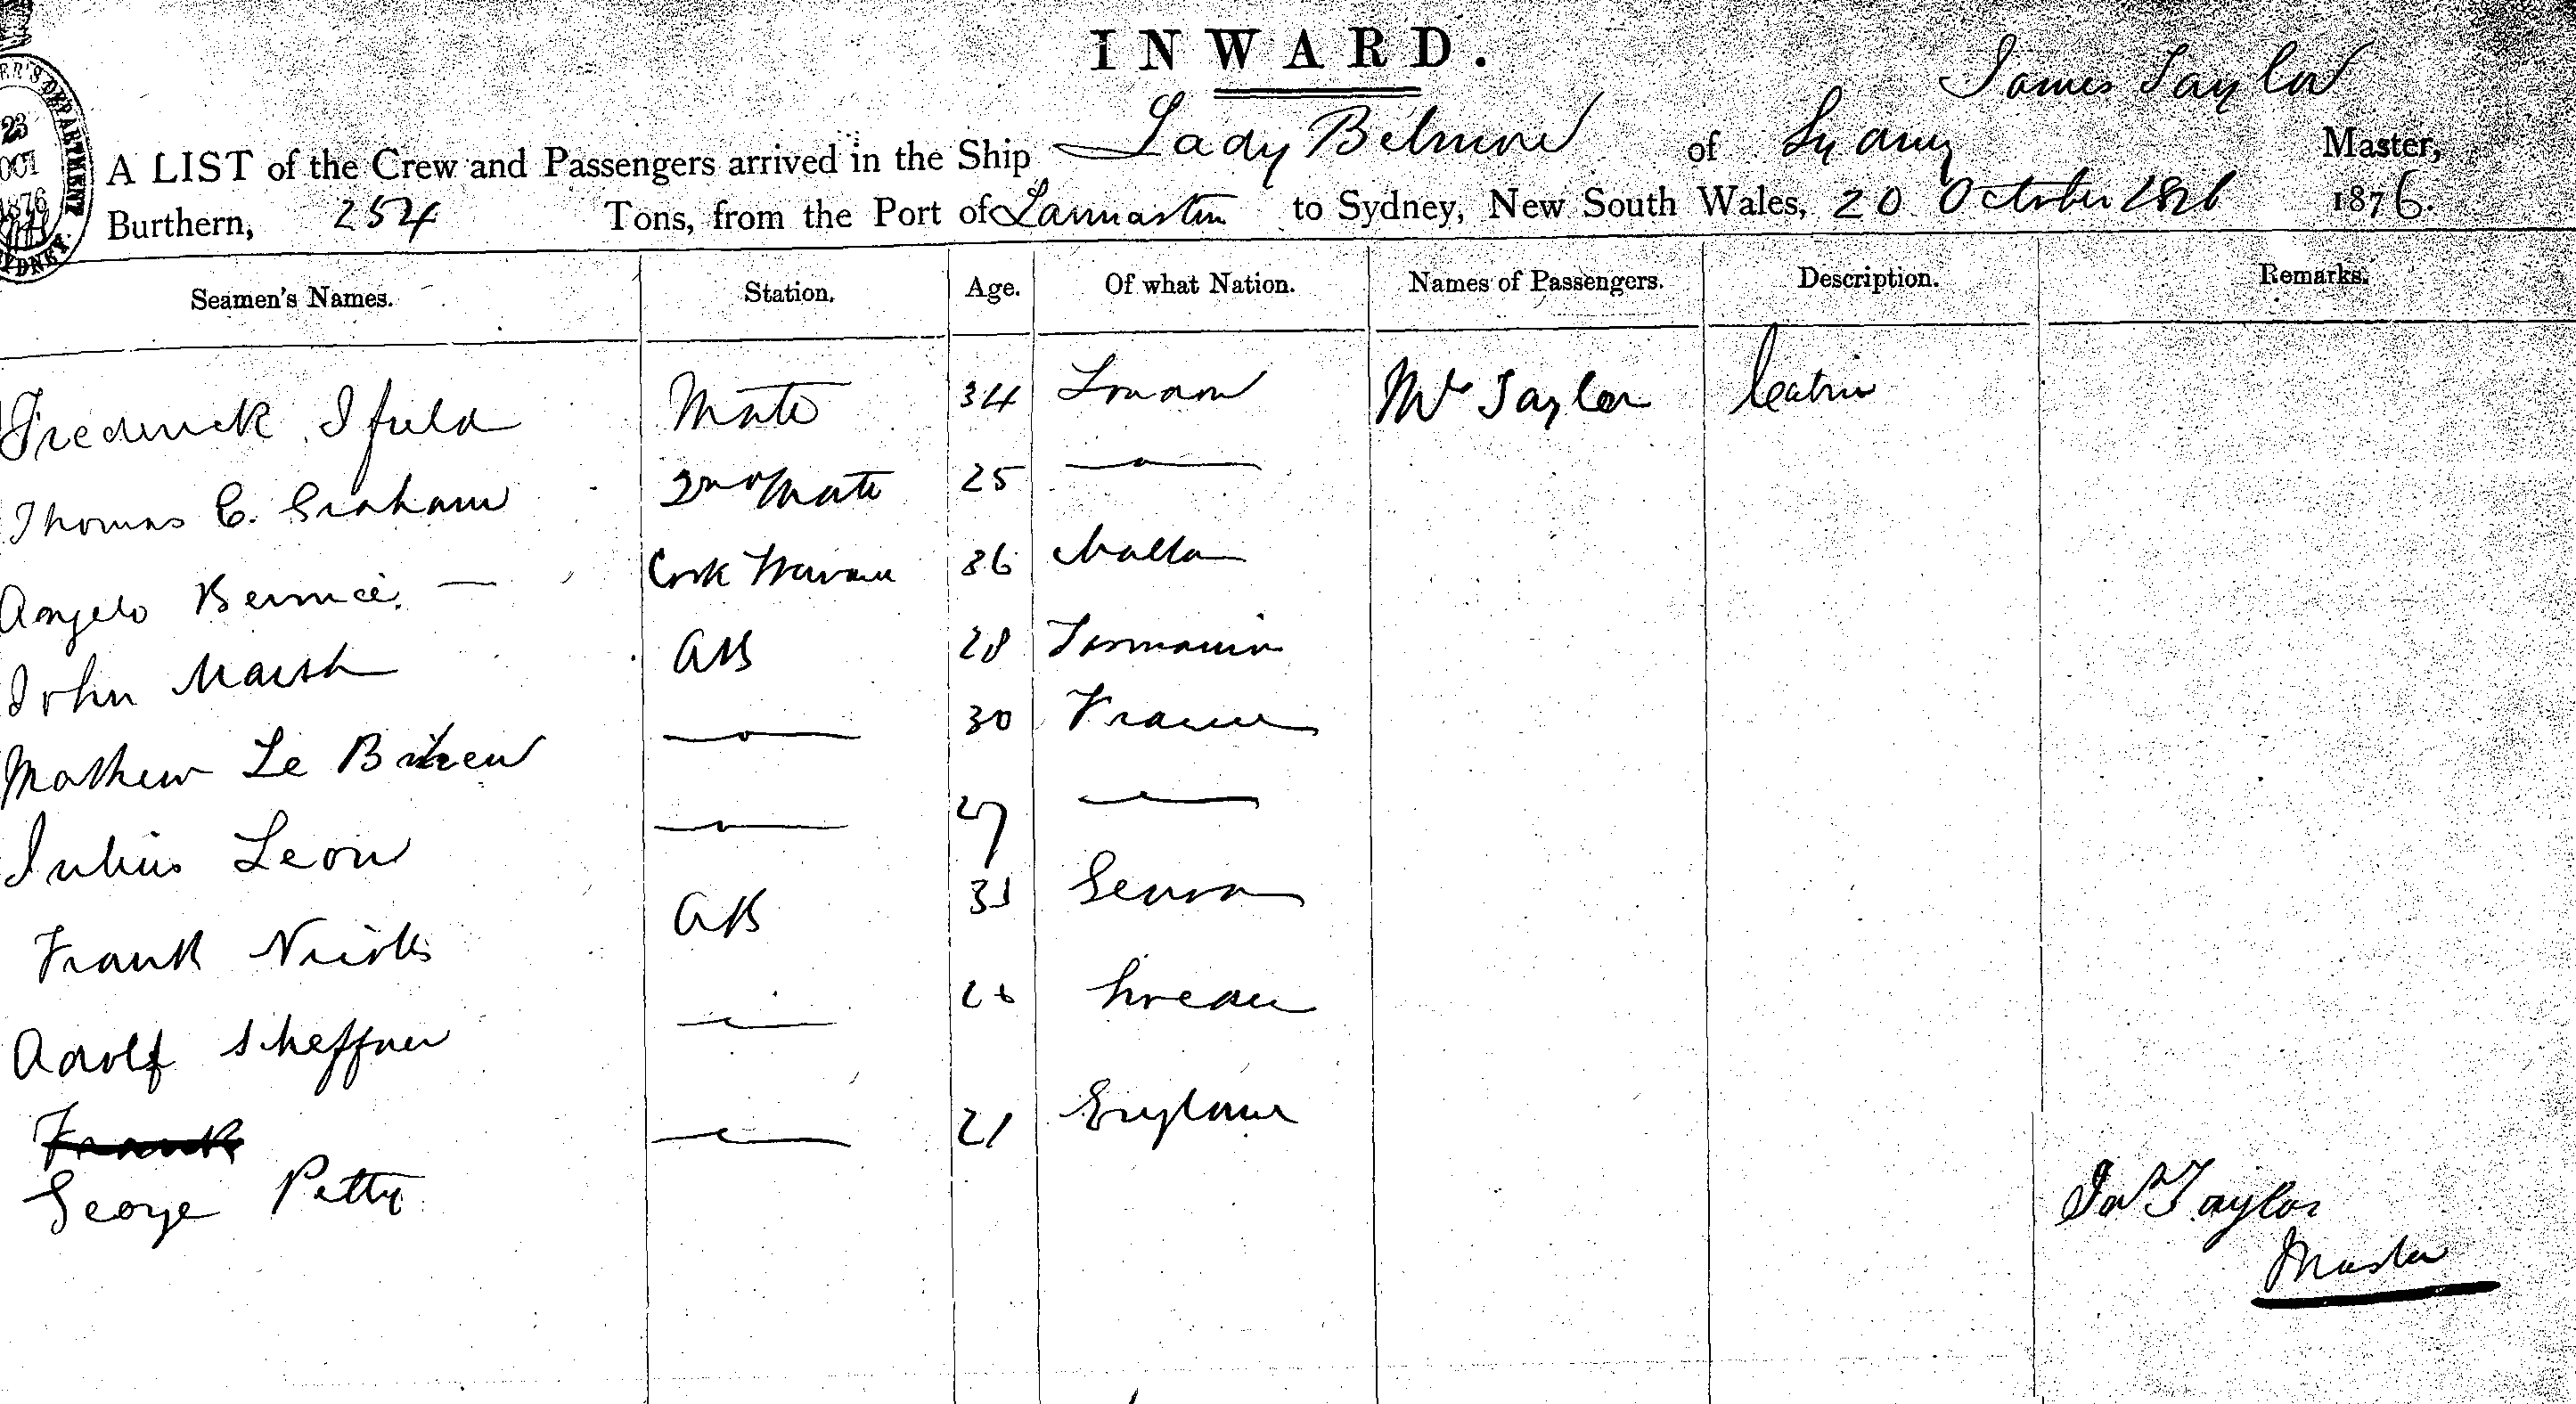 INWARD.
James Taylor
A LIST of the Crew and Passengers arrived in the Ship Lady Belmore of Sydney Master,
Burthern, 254 Tons, from the Port of Launceston to Sydney, New South Wales, 20 October 1876 1876.
23
OCT
1876
SYDNEY.
Seamen's Names. Station. Age. Of what Nation. Names of Passengers. Description. Remarks.
Frederick Ifield Mate 34 London Mrs Taylor Cabin
Thomas C. Graham 2nd Mate 25 —〃—
Angelo Bernice. — Cook 36 Malta
John Marsh AB 28 Tasmania
Mathew Le —〃— 30 France
Julius Leon —〃— 27 —〃—
Frank Nicolls AB 31 Genoa
Adolf Scheffner —〃— 26
Frank
George Petty —〃— 21 England
Jas Taylor
Master